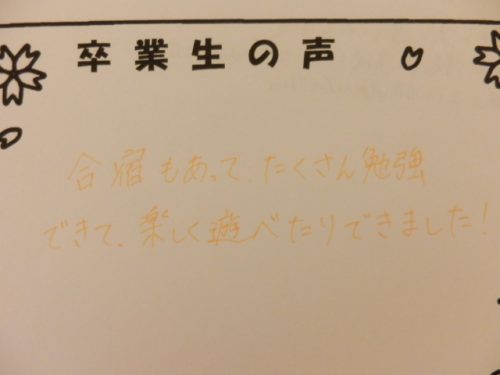 卒業生の声
合宿もあって、たくさん勉強
できて、楽しく遊べたりできました!